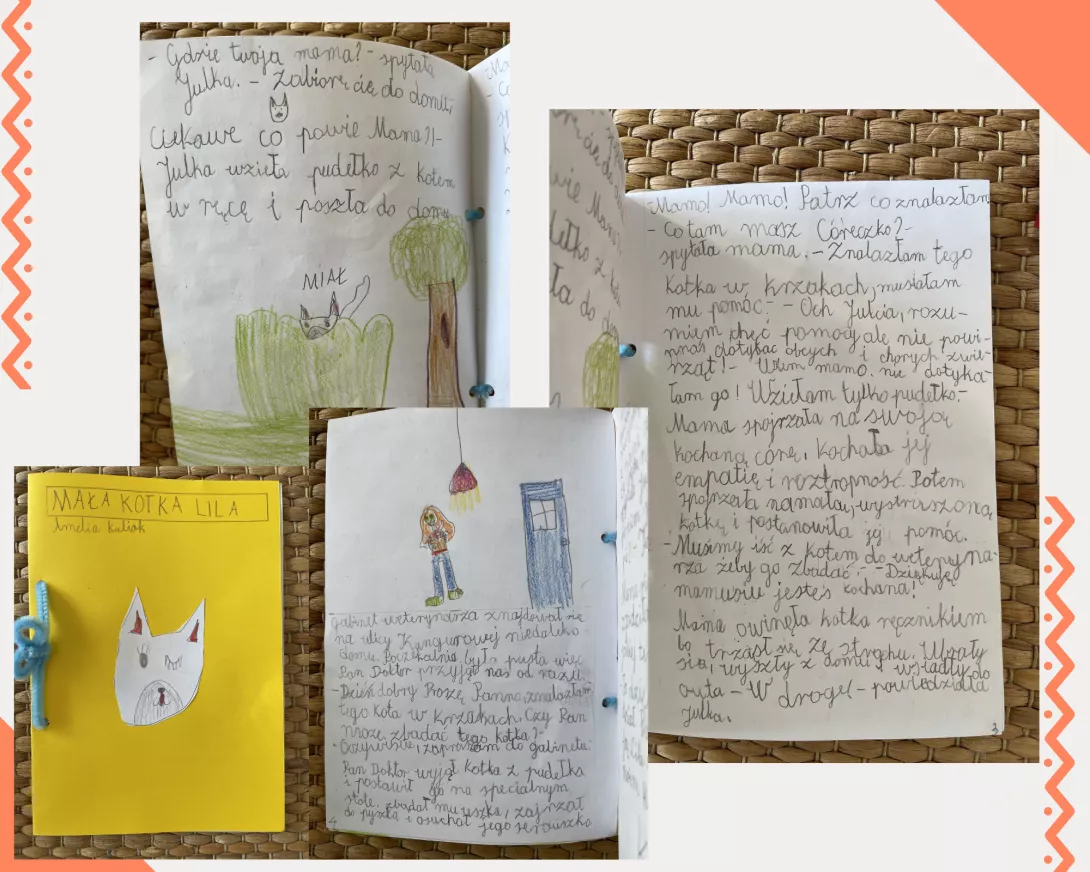 MAŁA KOTKA LILA
Amelia
- Gdzie twoja mama? - spytała
Julka. - Zabiorę cię do domu,
ciekawe co powie Mama?! -
Julka wzięła pudełko z kotem
w ręcę i poszła do domu.
MIAŁ
- Mamo! Mamo! Patrz co znalazłam
- Co tam masz Córeczko? -
spytała mama. - Znalazłam tego
kotka w krzakach, musiałam
mu pomóc. - - Och Julcia, rozu-
miem chęć pomocy ale nie powi-
nnaś dotykać obcych i chorych zwie-
rząt! - Wiem mamo, nie dotyka-
łam go! Wzięłam tylko pudełko. -
Mama spojrzała na swoją
kochaną córę, kochała jej
empatię i roztropność. Potem
spojrzała na małą, wystraszoną
kotkę i postanowiła jej pomóc.
- Musimy iść z kotem do weteryna-
rza żeby go zbadać. - - Dziękuję
mamusiu jesteś kochana!
Mama owinęła kotka ręcznikiem
bo trząsł się ze strachu. Ubrały
się, wyszły z domu i wsiadły do
auta - W drogę! - powiedziała
Julka.
3
Gabinet weterynarza znajdował się
na ulicy Kangurowej niedaleko
domu. Poczekalnia była pusta więc
Pan Doktor przyjął nas od razu.
- Dzień dobry Proszę Pana, znalazłam
tego kota w krzakach. Czy Pan
może zbadać tego kotka? -
- Oczywiście, zapraszam do gabinetu.
Pan Doktor wyjął kotka z pudełka
i postawił go na specjalnym
stole, zbadał mu uszka, zajrzał
do pyszka i osłuchał jego serduszko
4